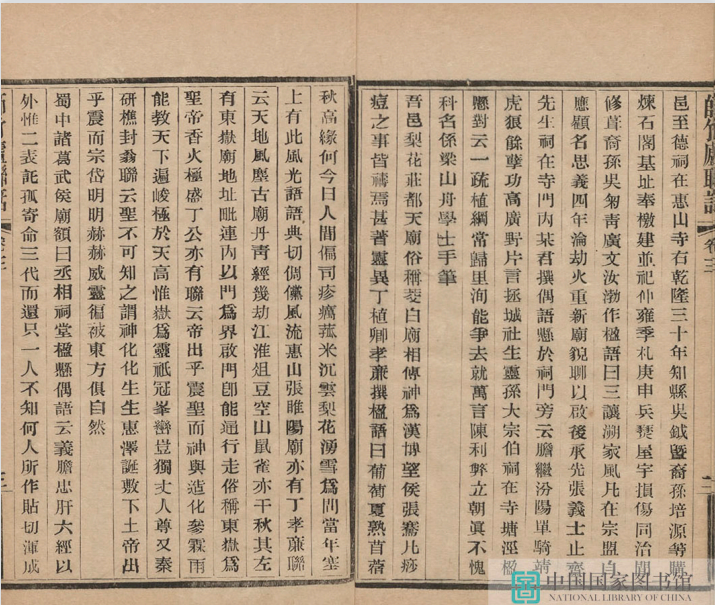 邑至德祠在惠山寺右乾隆三十年知縣吳鉞暨裔孫培源等購
煉石閣基址奉檄建並祀仲雍季札庚申兵燹屋宇損傷同治間
修葺裔孫吳匊青廣文汝渤作楹語曰三讓溯家風凡在宗盟自
應顧名思義四年淪劫火重新廟貌聊以啟後承先張義士止齋
先生祠在寺門內某君撰偶語懸於祠門旁云膽繼汾陽單騎靖
虎狼餘孽功高廣野片言拯城社生靈孫大宗伯祠在寺塘涇楹
懸對云一疏植綱常歸里洵能爭去就萬言陳利弊立朝眞不愧
科名係梁山舟學士手筆
吾邑梨花莊都天廟俗稱茭白廟相傳神爲漢博望侯張騫凡痧
痘之事皆禱焉甚著靈異丁植卿孝亷撰楹語曰葡萄夏熟苜蓿
秋高緣何今日人間偏司疹癘菰米沉雲梨花湧雪爲問當年塞
上有此風光語語典切倜儻風流惠山張睢陽廟亦有丁孝亷聯
云天地風塵古廟丹青經幾劫江淮俎豆空山鼠雀亦千秋其左
有東嶽廟地址毗連內以門爲界啟門卽能通行走俗稱東嶽爲
聖帝香火極盛丁公亦有聯云帝出乎震聖而神與造化參霖雨
能教天下遍峻極於天高惟嶽爲靈祇冠峯巒豈獨丈人尊又秦
研樵封翁聯云聖不可知之謂神化化生生惠澤誕敷下土帝出
乎震而宗岱明明赫赫威靈徧被東方俱自然
蜀中諸葛武侯廟額曰丞相祠堂楹懸偶語云義膽忠肝六經以
外惟二表託孤寄命三代而還只一人不知何人所作貼切渾成
師竹廬聯話
卷三
中国国家图书馆
NATIONAL LIBRARY OF CHINA